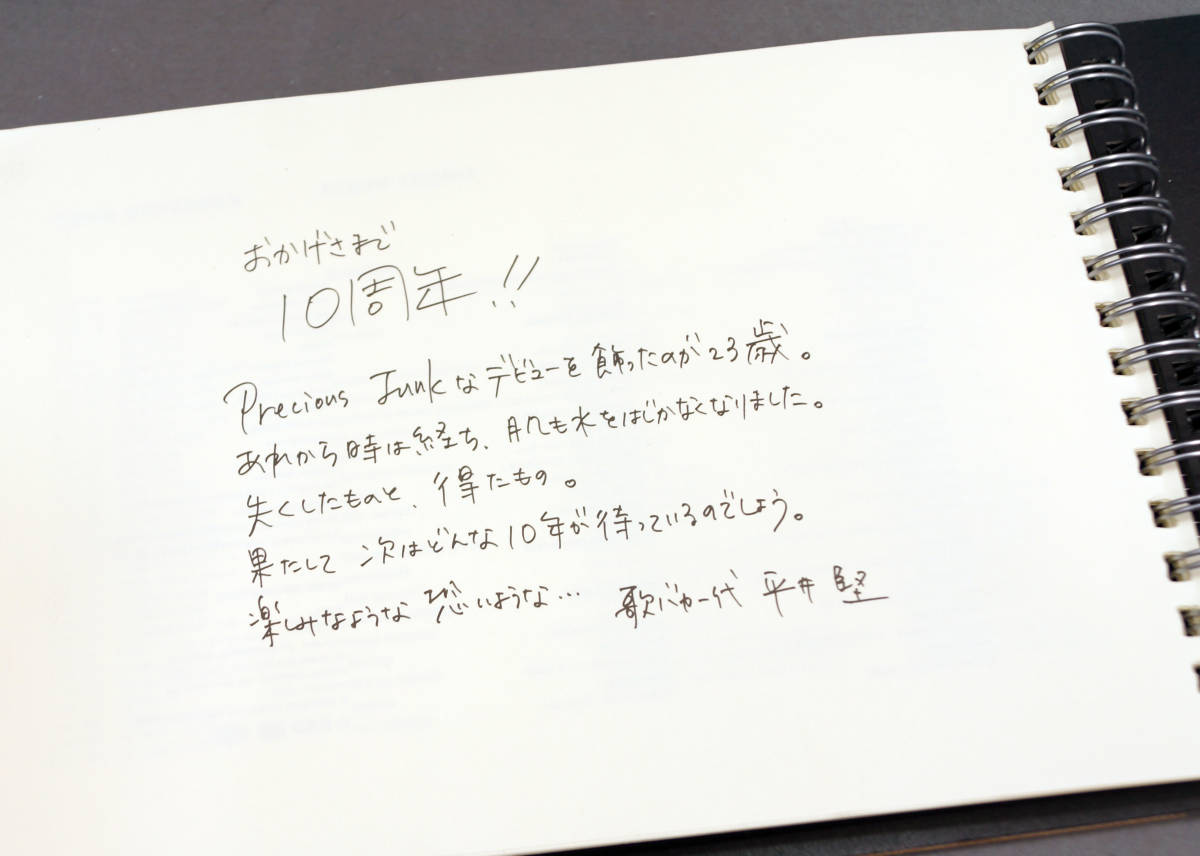 おかげさまで
10周年!!
Precious Junkなデビューを飾ったのが23歳。
あれから時は経ち、肌も水をはじかなくなりました。
失くしたものと、得たもの。
果たして 次はどんな10年が待っているのでしょう。
楽しみなような 恐いような… 歌バカ一代 平井 堅